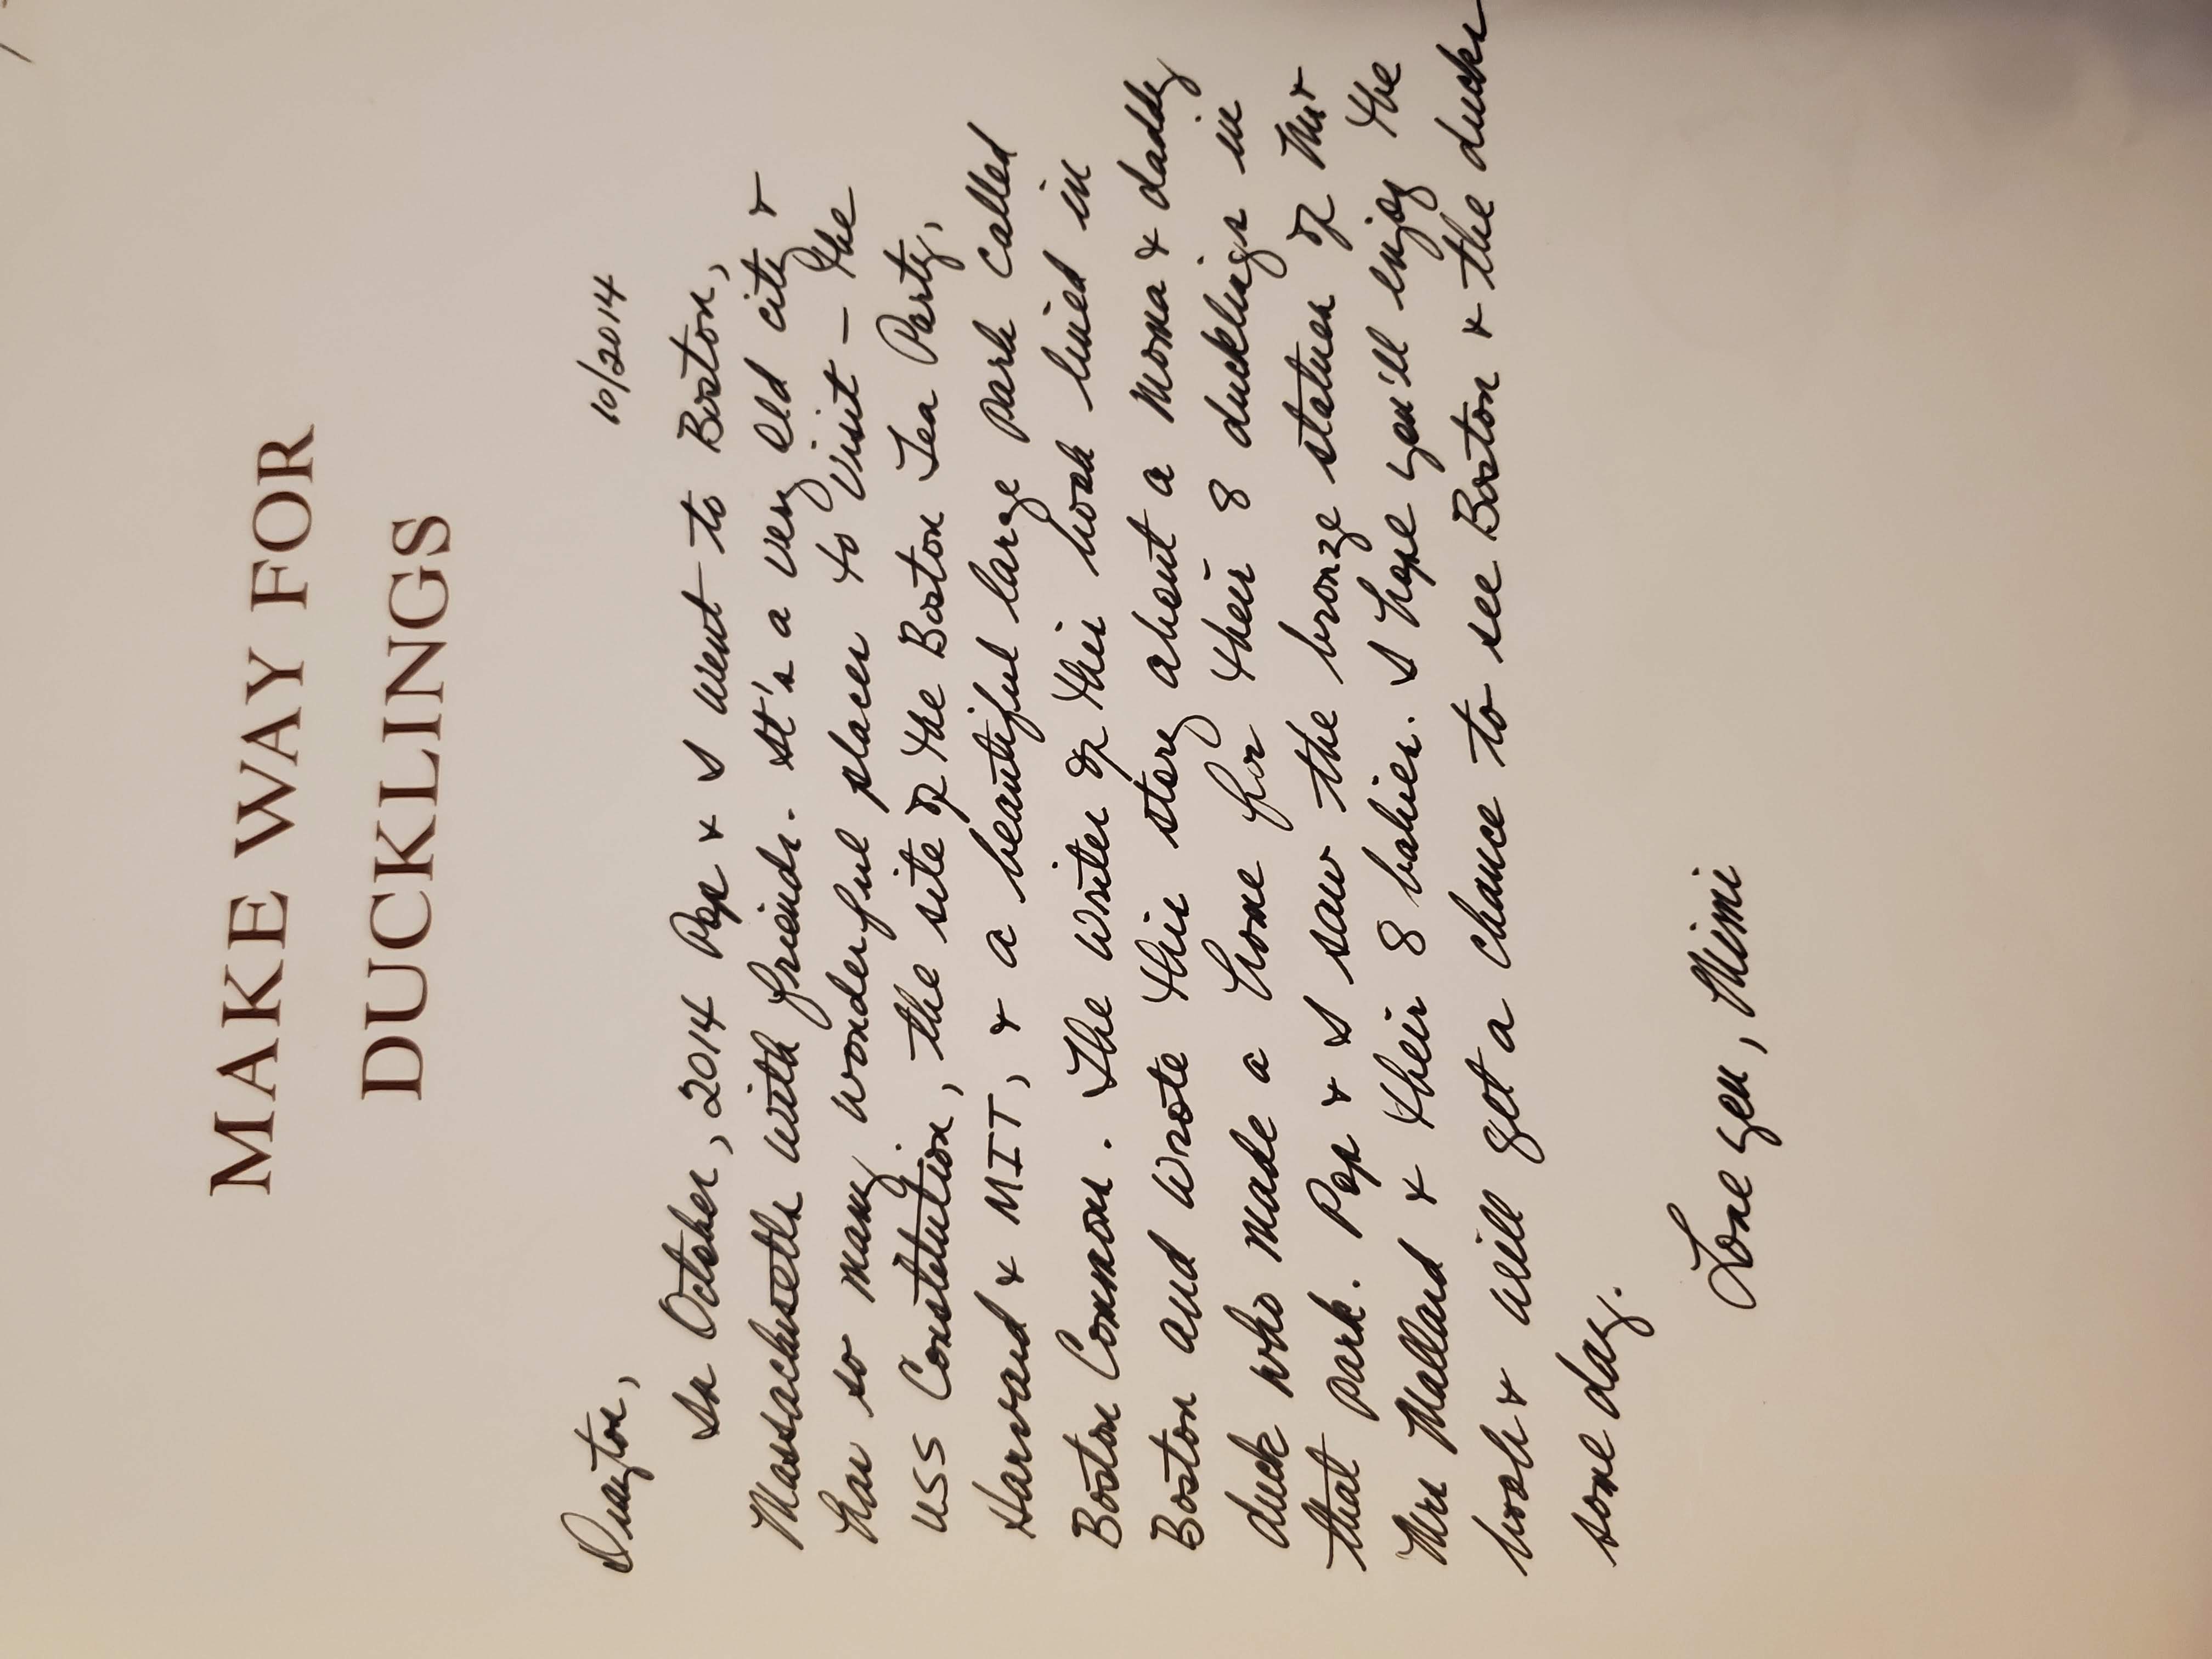 MAKE WAY FOR
DUCKLINGS
Drayton,
10/2014
In October, 2014 Pop & I went to Boston,
Massachusetts with friends. It's a very old city &
has so many wonderful places to visit – the
USS Constitution, the site of the Boston Tea Party,
Harvard & MIT, & a beautiful large park called
Boston Commons. The writer of this book lived in
Boston and wrote this story about a moma & daddy
duck who made a home for their 8 ducklings in
that park. Pop & I saw the bronze statues of Mr &
Mrs Mallard & their 8 babies. I hope you'll enjoy the
book & will get a chance to see Boston & the ducks
some day.
Love you, Mimi